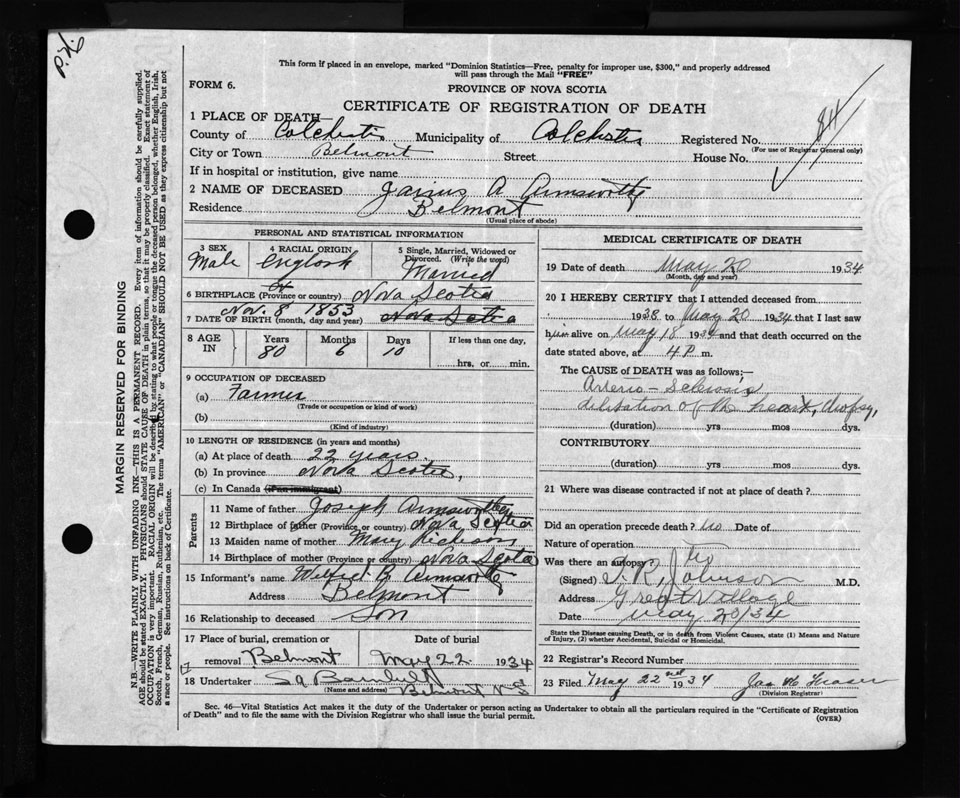 P.H.
This form if placed in an envelope, marked "Dominion Statistics—Free, penalty for improper use, $300," and properly addressed
will pass through the Mail "FREE"
FORM 6.
PROVINCE OF NOVA SCOTIA
CERTIFICATE OF REGISTRATION OF DEATH
84
1 PLACE OF DEATH—
County of Colchester Municipality of Colchester Registered No.
(For use of Registrar General only)
City or Town Belmont Street House No.
If in hospital or institution, give name
2 NAME OF DECEASED Jairus A Armsworthy
Residence Belmont
(Usual place of abode)
PERSONAL AND STATISTICAL INFORMATION
3 SEX Male
4 RACIAL ORIGIN English
5 Single, Married, Widowed or Divorced. (Write the word) Married
6 BIRTHPLACE (Province or country) Nova Scotia
7 DATE OF BIRTH (month, day and year) Nov. 8 1853 Nova Scotia
8 AGE IN Years 80 Months 6 Days 10 If less than one day,
hrs. or min.
9 OCCUPATION OF DECEASED
(a) Farmer
(Trade or occupation or kind of work)
(b)
(Kind of industry)
10 LENGTH OF RESIDENCE (in years and months)
(a) At place of death 22 years.
(b) In province Nova Scotia,
(c) In Canada (if an immigrant)
Parents
11 Name of father Joseph Armsworthy
12 Birthplace of father (Province or country) Nova Scotia
13 Maiden name of mother Mary
14 Birthplace of mother (Province or country) Nova Scotia
15 Informant's name Wilfred B Armsworthy
Address Belmont
16 Relationship to deceased Son
17 Place of burial, cremation or Date of burial
removal Belmont May 22 1934
18 Undertaker
(Name and address) Belmont N S
MEDICAL CERTIFICATE OF DEATH
19 Date of death May 20 1934
(Month, day and year)
20 I HEREBY CERTIFY that I attended deceased from
1938 to May 20 1934 that I last saw
him alive on May 18 1934 and that death occurred on the
date stated above, at 4 P m.
The CAUSE of DEATH was as follows;—
Arterio-Sclerosis
dilitation of the heart, dropsy,
(duration) yrs mos dys.
CONTRIBUTORY
(duration) yrs mos dys.
21 Where was disease contracted if not at place of death?
Did an operation precede death? no Date of
Nature of operation
Was there an autopsy? no
(Signed) Johnson M.D.
Address Great Village
Date May 20/34
State the Disease causing Death, or in death from Violent Causes, state (1) Means and Nature
of Injury, (2) whether Accidental, Suicidal or Homicidal.
22 Registrar's Record Number
23 Filed May 22nd 1934 Jas Fraser
(Division Registrar)
Sec. 46—Vital Statistics Act makes it the duty of the Undertaker or person acting as Undertaker to obtain all the particulars required in the "Certificate of Registration
of Death" and to file the same with the Division Registrar who shall issue the burial permit.
(OVER)
MARGIN RESERVED FOR BINDING
N.B.—WRITE PLAINLY WITH UNFADING INK—THIS IS A PERMANENT RECORD. Every item of information should be carefully supplied.
AGE should be stated EXACTLY. PHYSICIANS should STATE CAUSE OF DEATH in plain terms, so that it may be properly classified. Exact statement of
OCCUPATION is very important. RACIAL ORIGIN will be described by stating to what people or tongue the deceased person belonged, whether English, Irish,
Scotch, French, German, Russian, Ruthenian, etc. The terms "AMERICAN" or "CANADIAN" SHOULD NOT BE USED as they express citizenship but not
a race or people. See instructions on back of Certificate.